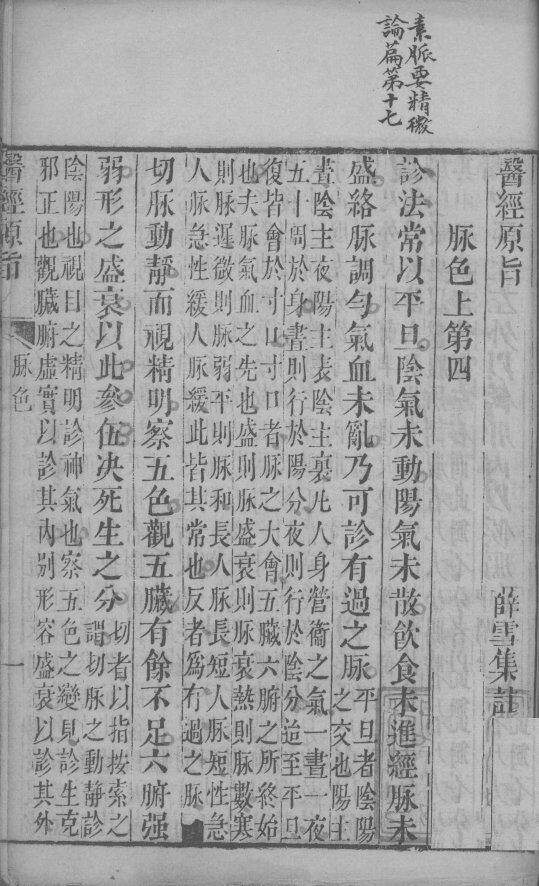 素脈要精微
論篇第十七
醫經原旨
薛雪集註
脉色上第四
診法常以平旦陰氣未動陽氣未散飲食未進經脉未
盛絡脉調勻氣血未亂乃可診有過之脉
平旦者陰陽
之交也陽主
晝陰主夜陽主表陰主裏凡人身營衞之氣一晝一夜
五十周於身晝則行於陽分夜則行於陰分迨至平旦
復皆會於寸口寸口者脉之大會五臟六腑之所終始
也夫脉氣血之先也盛則脉盛衰則脉衰熱則脉數寒
則脉遲微則脉弱平則脉和長人脉長短人脉短性急
人脉急性緩人脉緩此皆其常也反者爲有過之脉
切脉動靜而視精明察五色觀五臟有餘不足六腑强
弱形之盛衰以此參伍决死生之分
切者以指按索之
謂切脉之動靜診
陰陽也視目之精明診神氣也察五色之變見診生克
邪正也觀臟腑虛實以診其內别形容盛衰以診其外
醫經原旨
脉色
一